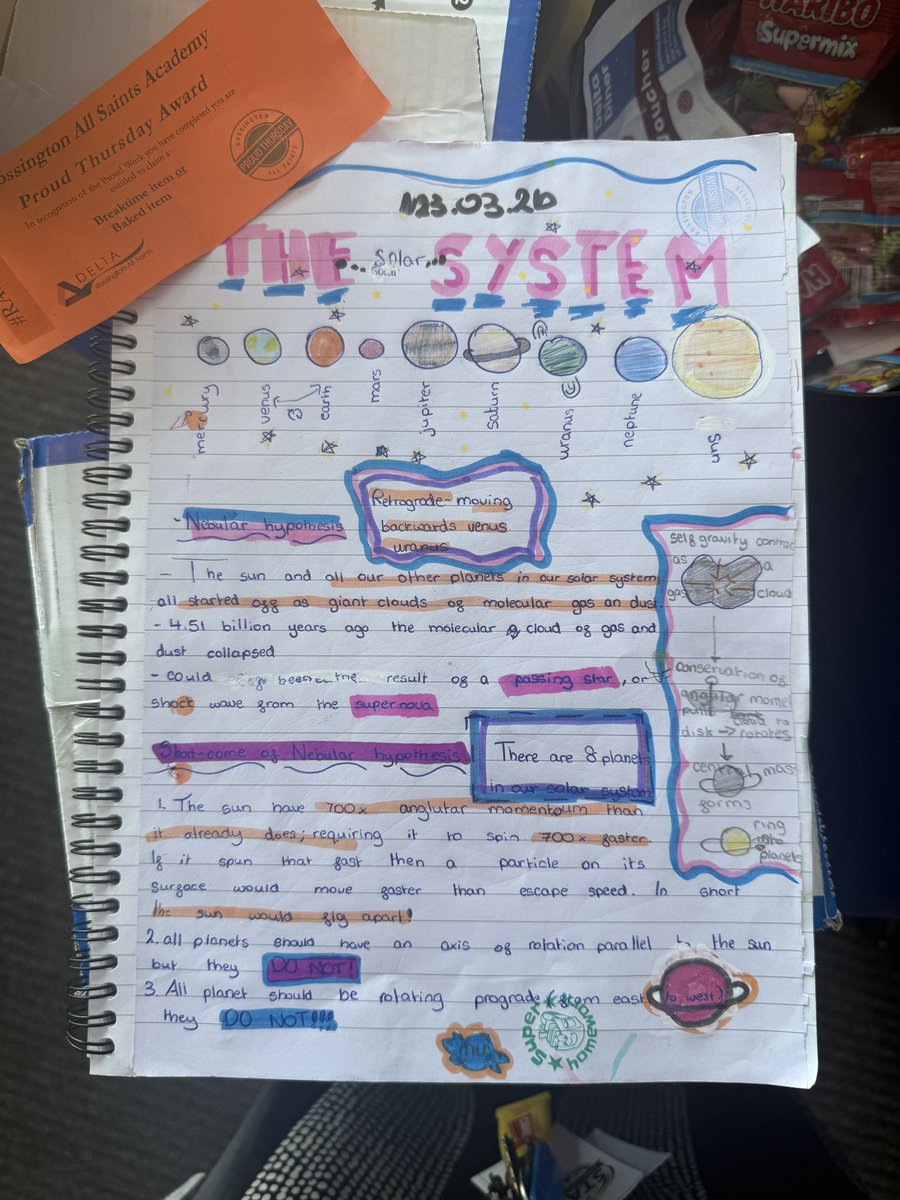 Rossington All Saints Academy
Proud Thursday Award
In recognition of the Proud Work you have completed you are
entitled to claim a
Breaktime item or
Baked item
ROSSINGTON
PROUD THURSDAY
ALL SAINTS
DELTA
Rossington All Saints
HARIBO
Supermix
23.03.26
THE Solar SYSTEM
mercury
venus
earth
mars
jupiter
saturn
uranus
neptune
Sun
Retrograde- moving
backwards venus
uranus
- Nebular hypothesis
- The sun and all our other planets in our solar system
all started off as giant clouds of molecular gas an dust.
- 4.51 billion years ago the molecular cloud of gas and
dust collapsed
- could been the result of a passing star, or
shock wave from the supernova
self gravity contrac
as a
gas cloud
conservation of
angular mome
disk → rotates
mas
forms
ring
into
planets
Short-come of Nebular hypothesis
There are 8 planets
in our solar system
1. The sun have 700x anglutar momentoum than
it already does; requiring it to spin 700x faster.
If it spun that fast then a particle on its
surface would move faster than escape speed. In short
the sun would fly apart!
2. all planets should have an axis of rotation parallel to the sun
but they DO NOT!
3. All planet should be rotating prograde (from east to west)
they DO NOT!!!
Super homework